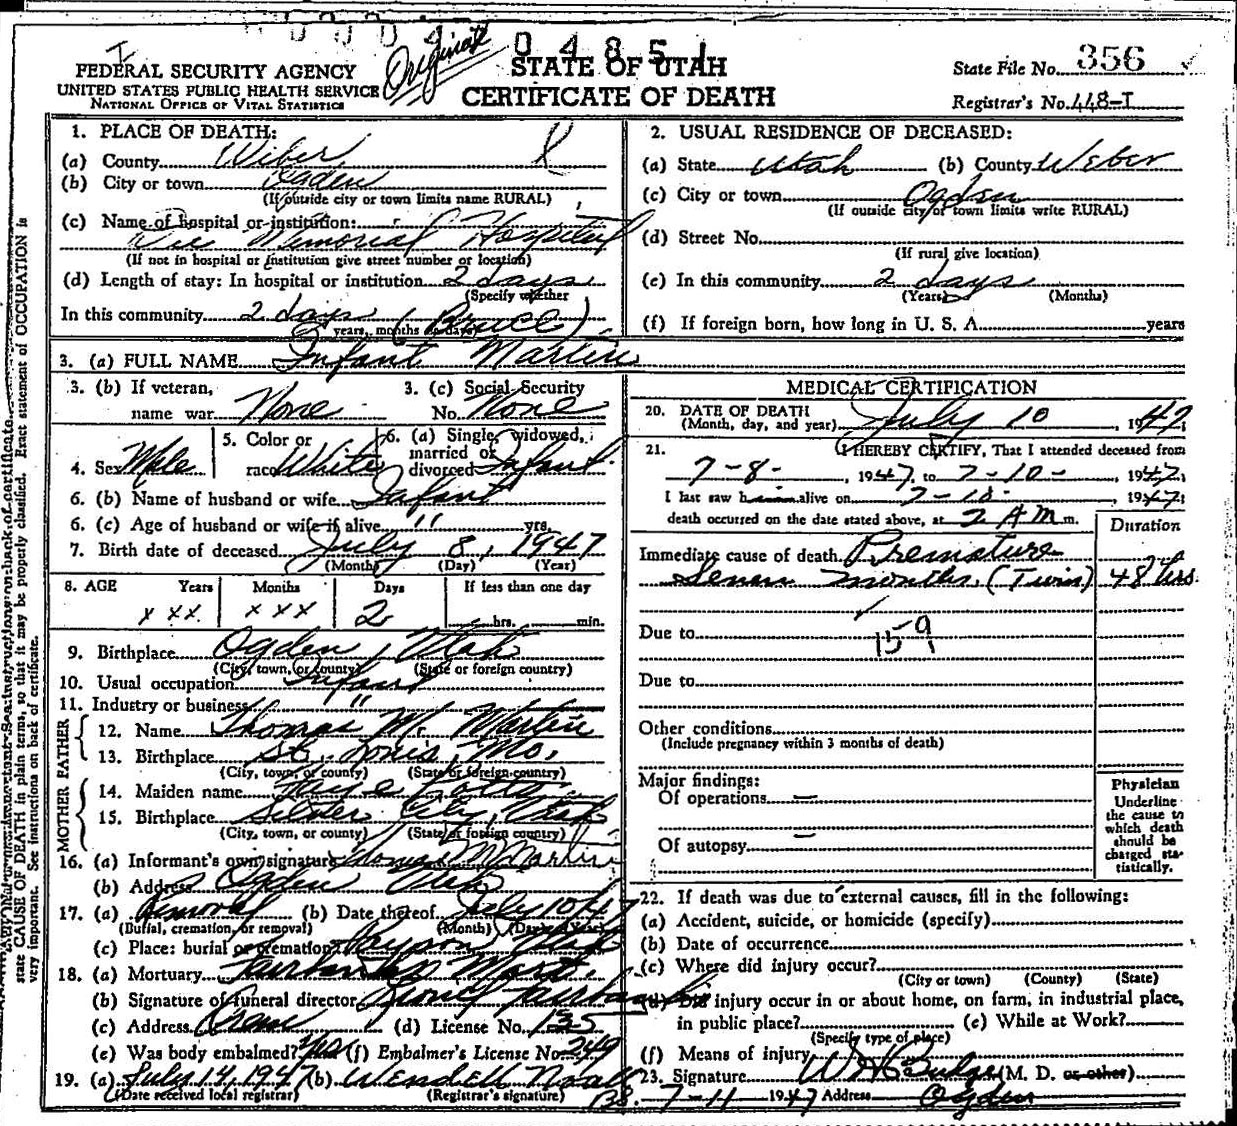 0 4 8 5 1
I
Originate
FEDERAL SECURITY AGENCY
UNITED STATES PUBLIC HEALTH SERVICE
NATIONAL OFFICE OF VITAL STATISTICS
STATE OF UTAH
CERTIFICATE OF DEATH
State File No. 356
Registrar's No. 448-I
1. PLACE OF DEATH:
(a) County Weber
(b) City or town Ogden
(If outside city or town limits name RURAL)
(c) Name of hospital or institution:
Dee Memorial Hospital
(If not in hospital or institution give street number or location)
(d) Length of stay: In hospital or institution 2 days
(Specify whether
In this community 2 days
years, months or days)
(Bruce)
2. USUAL RESIDENCE OF DECEASED:
(a) State Utah (b) County Weber
(c) City or town Ogden
(If outside city or town limits write RURAL)
(d) Street No.
(If rural give location)
(e) In this community 2 days
(Years) (Months)
(f) If foreign born, how long in U. S. A. years
3. (a) FULL NAME Infant Martin
3. (b) If veteran, name war None
3. (c) Social Security No. None
4. Sex Male
5. Color or race White
6. (a) Single, widowed, married or divorced Infant
6. (b) Name of husband or wife Infant
6. (c) Age of husband or wife if alive " yrs.
7. Birth date of deceased July 8, 1947
(Month) (Day) (Year)
8. AGE Years Months Days If less than one day
x xx. x xx 2 hrs. min.
9. Birthplace Ogden, Utah
(City, town, or county) (State or foreign country)
10. Usual occupation Infant
11. Industry or business "
FATHER
12. Name Thomas M. Martin
13. Birthplace St. Louis, Mo.
(City, town, or county) (State or foreign country)
MOTHER
14. Maiden name Faye Potts
15. Birthplace Silver City, Utah
(City, town, or county) (State or foreign country)
16. (a) Informant's own signature Thomas M Martin
(b) Address Ogden Utah
17. (a) Removal (b) Date thereof July 10 47
(Burial, cremation, or removal) (Month) (Day) (Year)
(c) Place: burial or cremation Payson Utah
18. (a) Mortuary Mort.
(b) Signature of funeral director
(c) Address (d) License No. 135
(e) Was body embalmed? Yes (f) Embalmer's License No. 249
19. (a) July 14, 1947 (b) Wendell Noall
(Date received local registrar) (Registrar's signature)
MEDICAL CERTIFICATION
20. DATE OF DEATH
(Month, day, and year) July 10, 1947
21. I HEREBY CERTIFY, That I attended deceased from
7-8-, 1947, to 7-10-, 1947;
I last saw him alive on 7-10-, 1947;
death occurred on the date stated above, at 2 A M m.
Duration
Immediate cause of death Premature
Seven months. (Twin) 48 hrs.
Due to
159
Due to
Other conditions
(Include pregnancy within 3 months of death)
Major findings:
Of operations —
Of autopsy —
Physician
Underline
the cause to
which death
should be
charged sta-
tistically.
22. If death was due to external causes, fill in the following:
(a) Accident, suicide, or homicide (specify)
(b) Date of occurrence
(c) Where did injury occur?
(City or town) (County) (State)
(d) Did injury occur in or about home, on farm, in industrial place,
in public place? (e) While at Work?
(Specify type of place)
(f) Means of injury
23. Signature W H Budge (M. D. or other)
7-11 1947 Address Ogden
state CAUSE OF DEATH in plain terms, so that it may be properly classified. Exact statement of OCCUPATION is
very important. See instructions on back of certificate.